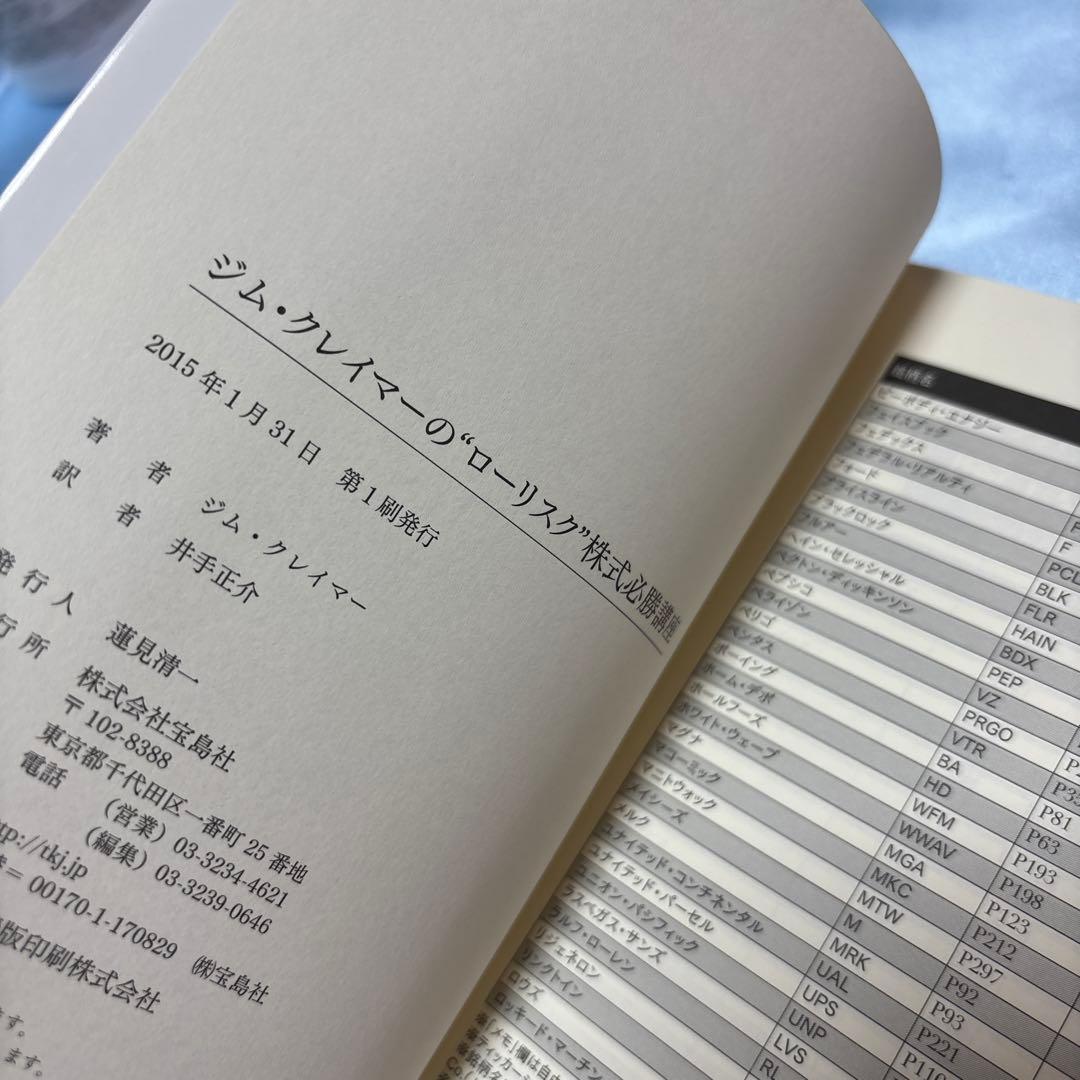 ジム・クレイマーの“ローリスク”株式必勝講座
2015年1月31日 第1刷発行
著者 ジム・クレイマー
訳者 井手正介
発行人 蓮見清一
行所 株式会社宝島社
〒102-8388
東京都千代田区一番町25番地
電話 (営業) 03-3234-4621
(編集) 03-3239-0646
http://tkj.jp
00170-1-170829 ㈱宝島社
版印刷株式会社
ます。
します。
銘柄名
ピーボディ・エナジー
フェイスブック
フェデックス
フェデラル・リアルティ
フォード F
プライスライン PCLN
ブラックロック BLK
フルアー FLR
ヘイン・セレッシャル HAIN
ベクトン・ディッキンソン BDX
ペプシコ PEP
ベライゾン VZ
ペリゴ PRGO
ベンタス VTR
ボーイング BA P81
ホーム・デポ HD P63
ホールフーズ WFM P193
ホワイト・ウェーブ WWAV P198
マグナ MGA P123
マコーミック MKC P212
マニトウォック MTW P297
メイシーズ M P92
メルク MRK P93
ユナイテッド・コンチネンタル UAL P221
ユナイテッド・パーセル UPS
ユニオン・パシフィック UNP
ラスベガス・サンズ LVS
ラルフ・ローレン RL
リジェネロン
リンクトイン
ロウズ
ロッキード・マーチン
※「メモ」欄は自由
※ティッカー
※銘柄名